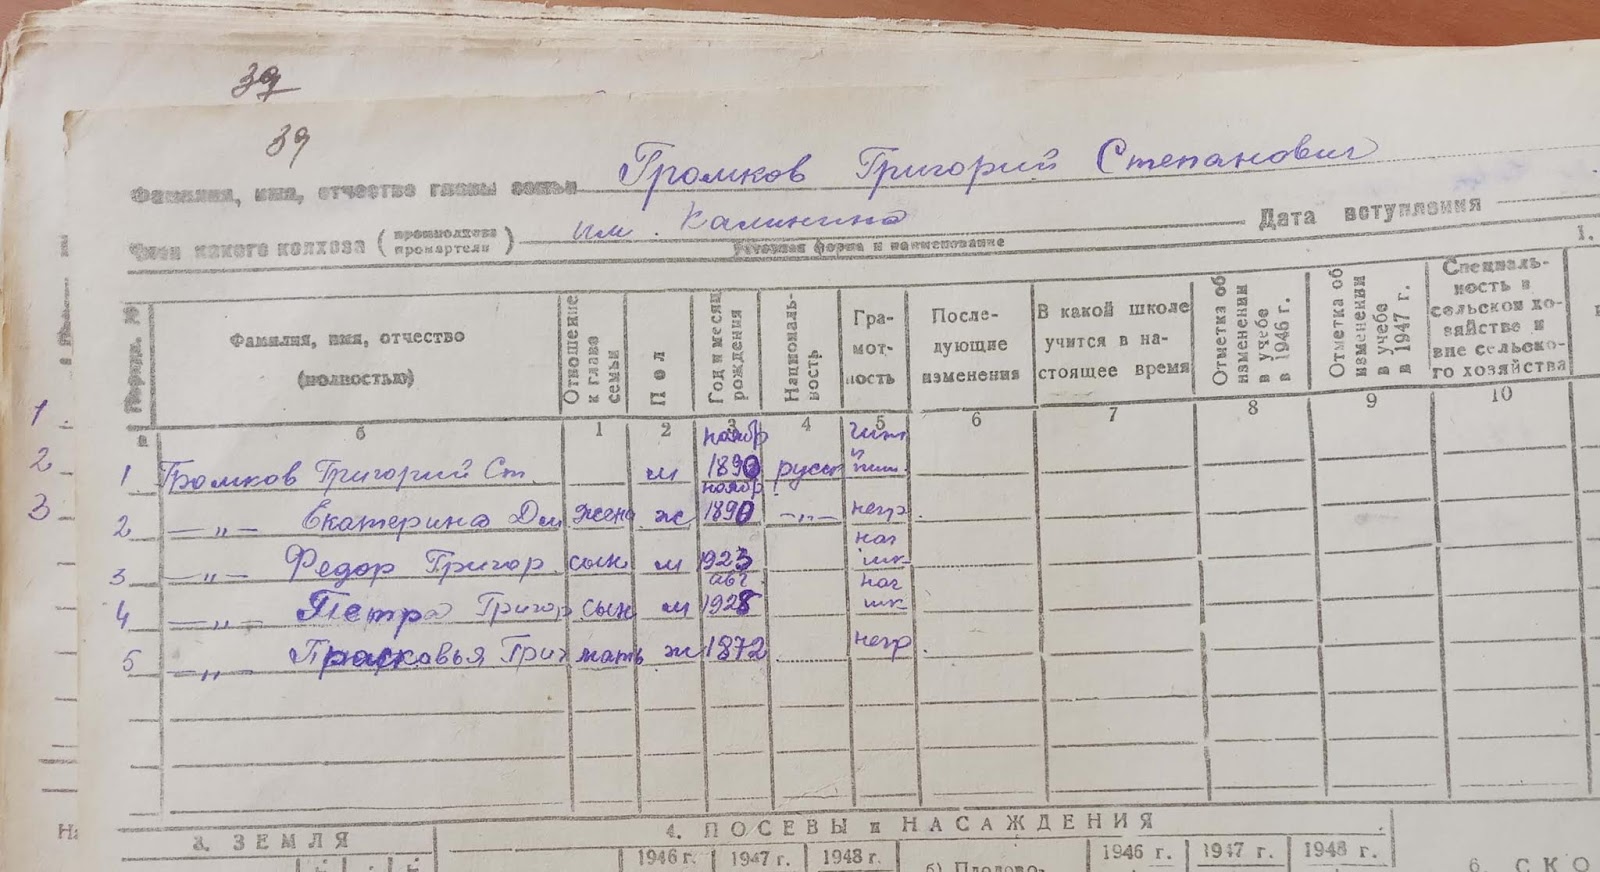 39
39
Фамилия, имя, отчество главы семьи Громков Григорий Степанович
Член какого колхоза (промколхоза промартели) им. Калинина Дата вступления
уставная форма и наименование
I.
Порядк. №
Фамилия, имя, отчество (полностью)
Отношение к главе семьи
Пол
Год и месяц рождения
Националь-ность
Гра-мот-ность
После-дующие изменения
В какой школе учится в на-стоящее время
Отметка об изменении в учебе в 1946 г.
Отметка об изменении в учебе в 1947 г.
Специаль-ность в сельском хо-зяйстве и вне сельско-го хозяйства
а б 1 2 3 4 5 6 7 8 9 10
1 Громков Григорий Ст. м ноябр 1890 русск чит и пиш
2 —„— Екатерина Дм жена ж ноябр 1890 —„— негр.
3 —„— Федор Григор. сын м 1923 нач шк
4 —„— Петр Григор сын м авг 1928 нач шк
5 —„— Прасковья Григ мать ж 1872 негр.
1
2
3
На
3. ЗЕМЛЯ
4. ПОСЕВЫ и НАСАЖДЕНИЯ
1946 г. 1947 г. 1948 г.
б) Плодово-
1946 г. 1947 г. 1948 г.
6. СКО